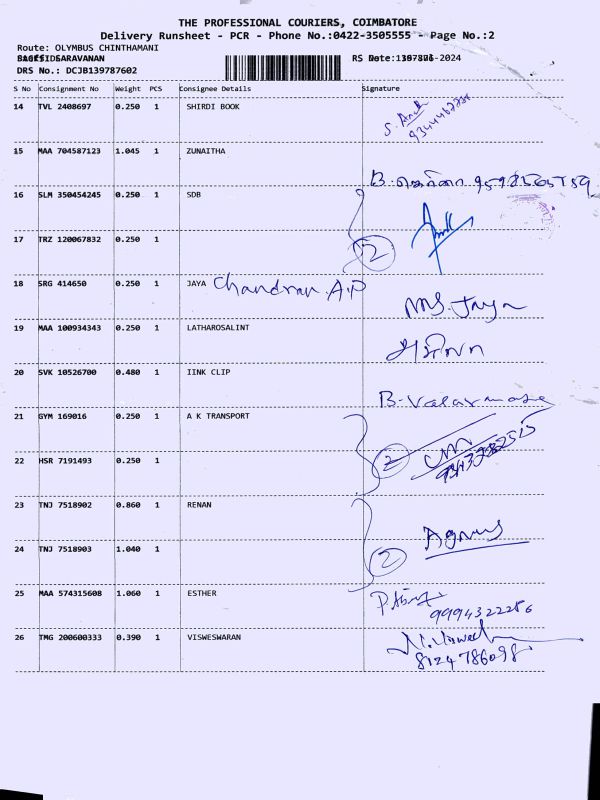 THE PROFESSIONAL COURIERS, COIMBATORE
Delivery Runsheet - PCR - Phone No.:0422-3505555 - Page No.:2
Route: OLYMBUS CHINTHAMANI
SARAVANAN
RS Date: -2024
DRS No.: DCJB139787602
S No Consignment No Weight PCS Consignee Details Signature
14 TVL 2408697 0.250 1 SHIRDI BOOK
15 MAA 704587123 1.045 1 ZUNAITHA
B.
16 SLM 350454245 0.250 1 SDB
17 TRZ 120067832 0.250 1 2
18 SRG 414650 0.250 1 JAYA Chandran. A.P
Jaya
19 MAA 100934343 0.250 1 LATHAROSALINT
20 SVK 10526700 0.480 1 IINK CLIP
B. Valarmase
21 GYM 169016 0.250 1 A K TRANSPORT
22 HSR 7191493 0.250 1 2
23 TNJ 7518902 0.860 1 RENAN
Agnus
24 TNJ 7518903 1.040 1 2
25 MAA 574315608 1.060 1 ESTHER
9994322286
26 TMG 200600333 0.390 1 VISWESWARAN
8124786098